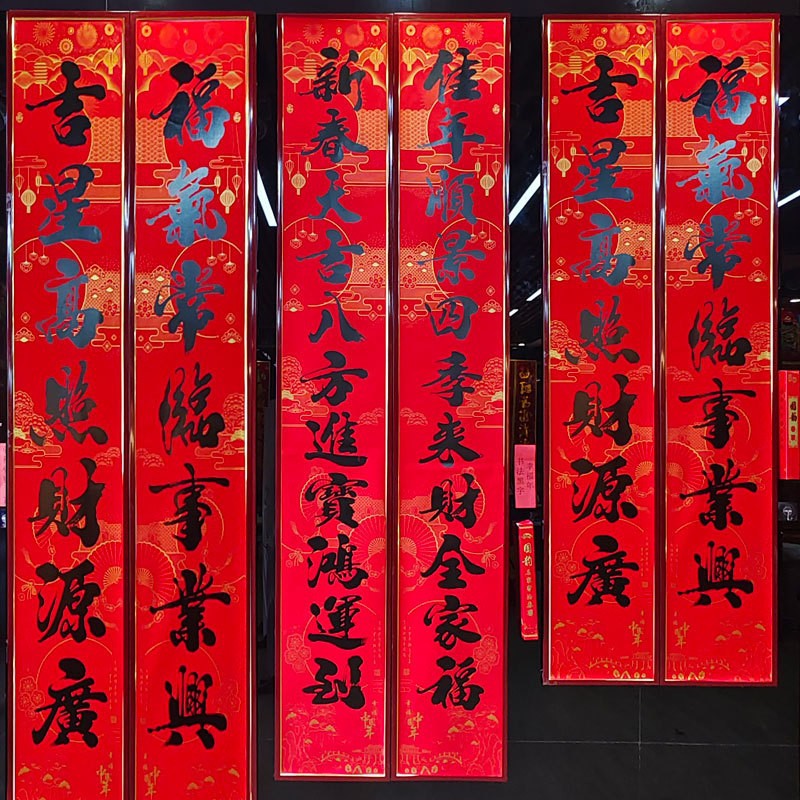 福氣常臨事業興
吉星高照財源廣
佳年順景四季來財全家福
新春大吉八方進寶鴻運到
福氣常臨事業興
吉星高照財源廣
幸福年
书法繁字